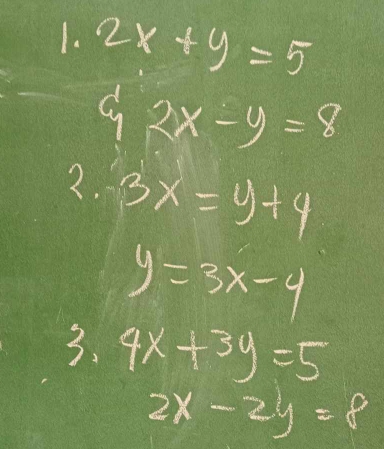 1. 2x + y = 5
& 2x - y = 8
2. 3x = y + 4
y = 3x - 4
3. 4x + 3y = 5
2x - 2y = 8